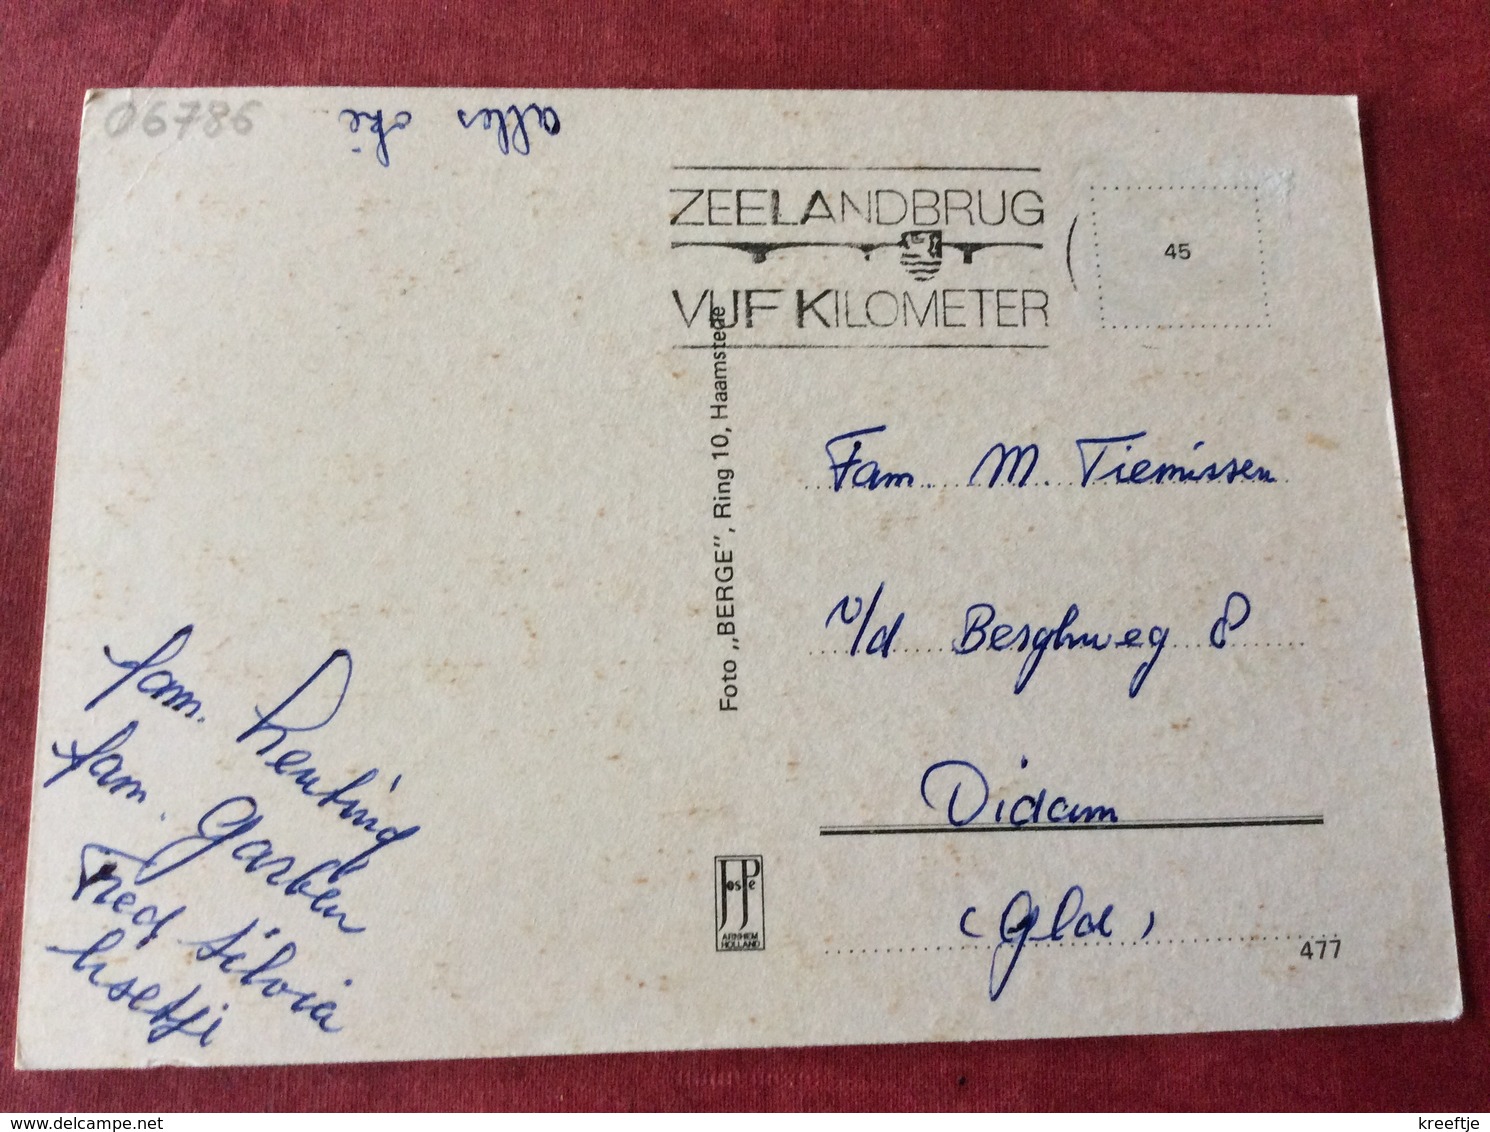 06786
alles oké
ZEELANDBRUG
VIJF KILOMETER
45
Foto „BERGE”, Ring 10, Haamstede
Fam. M. Tiemissen
v/d Berghweg 8
Didam
(Gld)
477
JosPe
ARNHEM
HOLLAND
fam. Heuting
fam. Garben
Fred Silvia
kreeftje